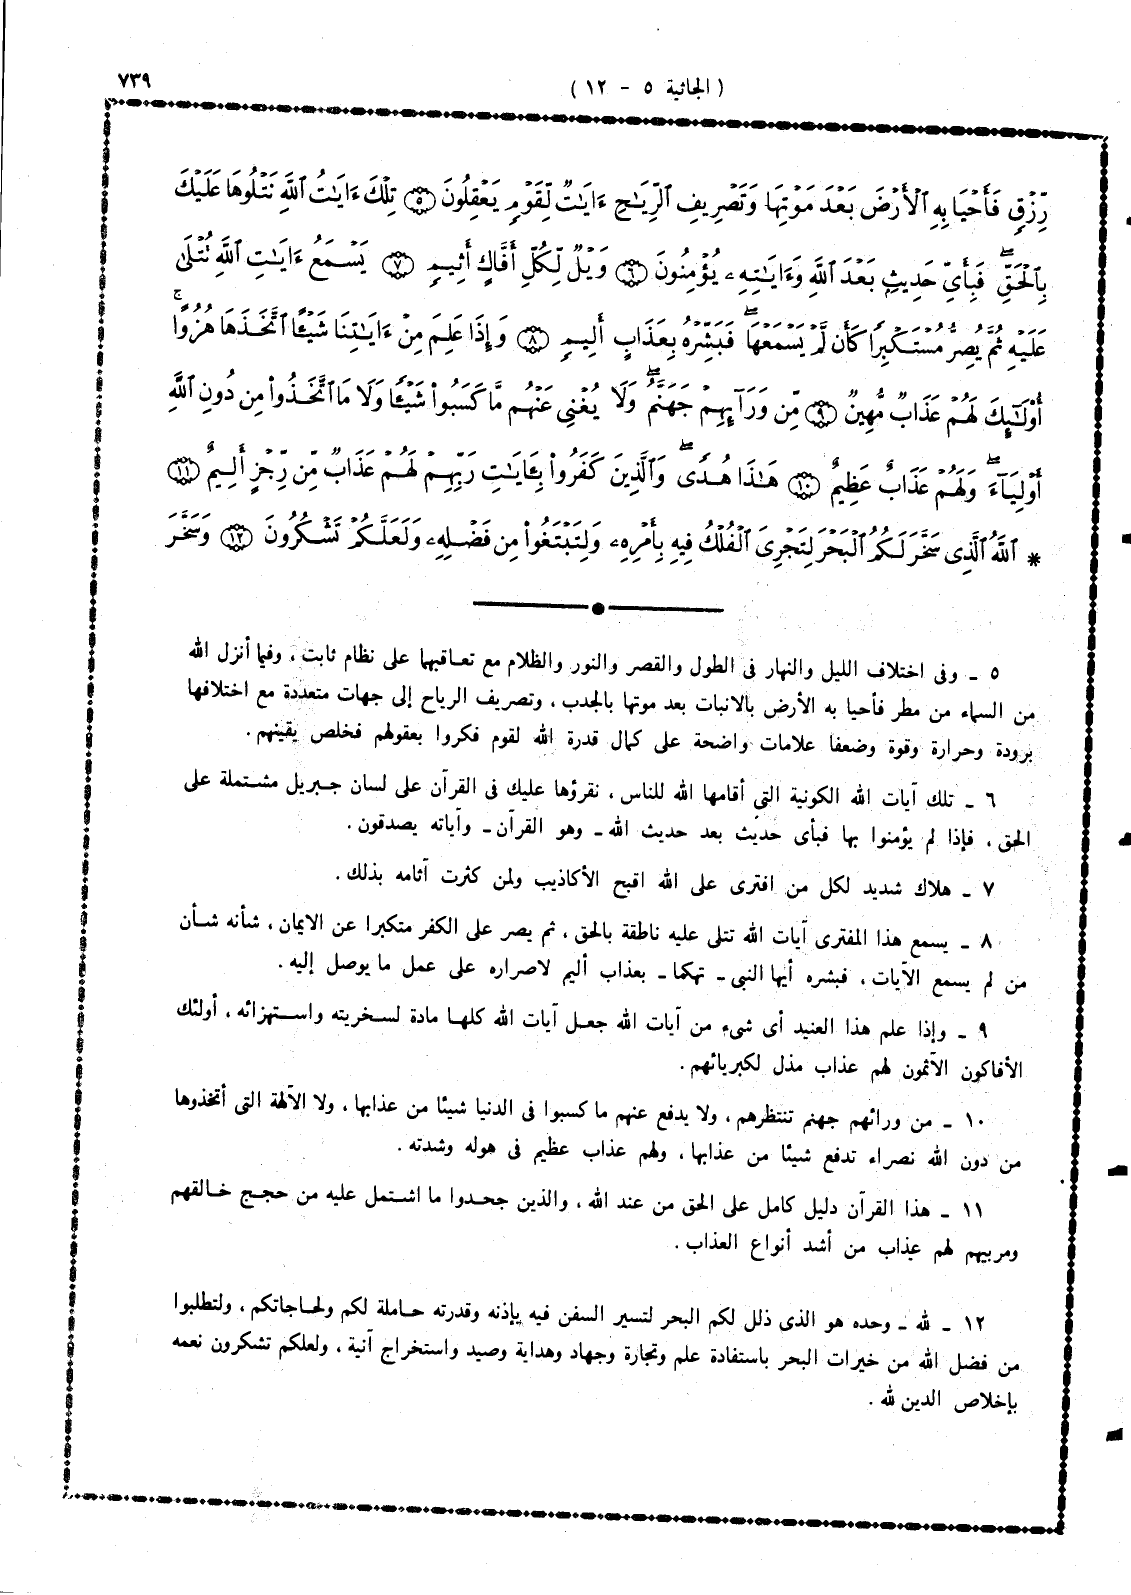 ٧٣٩
( الجاثية ٥ - ١٢ )
رِّزۡقٖ فَأَحۡيَا بِهِ ٱلۡأَرۡضَ بَعۡدَ مَوۡتِهَا وَتَصۡرِيفِ ٱلرِّيَٰحِ ءَايَٰتٞ لِّقَوۡمٖ يَعۡقِلُونَ ٥ تِلۡكَ ءَايَٰتُ ٱللَّهِ نَتۡلُوهَا عَلَيۡكَ
بِٱلۡحَقِّۖ فَبِأَيِّ حَدِيثِۭ بَعۡدَ ٱللَّهِ وَءَايَٰتِهِۦ يُؤۡمِنُونَ ٦ وَيۡلٞ لِّكُلِّ أَفَّاكٍ أَثِيمٖ ٧ يَسۡمَعُ ءَايَٰتِ ٱللَّهِ تُتۡلَىٰ
عَلَيۡهِ ثُمَّ يُصِرُّ مُسۡتَكۡبِرٗا كَأَن لَّمۡ يَسۡمَعۡهَاۖ فَبَشِّرۡهُ بِعَذَابٍ أَلِيمٖ ٨ وَإِذَا عَلِمَ مِنۡ ءَايَٰتِنَا شَيۡـًٔا ٱتَّخَذَهَا هُزُوًاۚ
أُوْلَٰٓئِكَ لَهُمۡ عَذَابٞ مُّهِينٞ ٩ مِّن وَرَآئِهِمۡ جَهَنَّمُۖ وَلَا يُغۡنِي عَنۡهُم مَّا كَسَبُواْ شَيۡـٔٗا وَلَا مَا ٱتَّخَذُواْ مِن دُونِ ٱللَّهِ
أَوۡلِيَآءَۖ وَلَهُمۡ عَذَابٌ عَظِيمٌ ١٠ هَٰذَا هُدٗىۖ وَٱلَّذِينَ كَفَرُواْ بِـَٔايَٰتِ رَبِّهِمۡ لَهُمۡ عَذَابٞ مِّن رِّجۡزٍ أَلِيمٌ ١١
* ٱللَّهُ ٱلَّذِي سَخَّرَ لَكُمُ ٱلۡبَحۡرَ لِتَجۡرِيَ ٱلۡفُلۡكُ فِيهِ بِأَمۡرِهِۦ وَلِتَبۡتَغُواْ مِن فَضۡلِهِۦ وَلَعَلَّكُمۡ تَشۡكُرُونَ ١٢ وَسَخَّرَ
٥ ـ وفى اختلاف الليل والنهار فى الطول والقصر والنور والظلام مع تعاقبهما على نظام ثابت ، وفيما أنزل الله
من السماء من مطر فأحيا به الأرض بالانبات بعد موتها بالجدب ، وتصريف الرياح إلى جهات متعددة مع اختلافها
برودة وحرارة وقوة وضعفا علامات واضحة على كمال قدرة الله لقوم فكروا بعقولهم فخلص يقينهم .
٦ ـ تلك آيات الله الكونية التي أقامها الله للناس ، نقرؤها عليك فى القرآن على لسان جبريل مشتملة على
الحق ، فإذا لم يؤمنوا بها فبأى حديث بعد حديث الله ـ وهو القرآن ـ وآياته يصدقون .
٧ ـ هلاك شديد لكل من افترى على الله اقبح الأكاذيب ولمن كثرت آثامه بذلك .
٨ ـ يسمع هذا المفترى آيات الله تتلى عليه ناطقة بالحق ، ثم يصر على الكفر متكبرا عن الايمان ، شأنه شأن
من لم يسمع الآيات ، فبشره أيها النبى ـ تهكما ـ بعذاب أليم لاصراره على عمل ما يوصل إليه .
٩ ـ وإذا علم هذا العنيد أى شىء من آيات الله جعل آيات الله كلها مادة لسخريته واستهزائه ، أولئك
الأفاكون الآثمون لهم عذاب مذل لكبريائهم .
١٠ ـ من ورائهم جهنم تنتظرهم ، ولا يدفع عنهم ما كسبوا فى الدنيا شيئا من عذابها ، ولا الآلهة التى أتخذوها
من دون الله نصراء تدفع شيئا من عذابها ، ولهم عذاب عظيم فى هوله وشدته .
١١ ـ هذا القرآن دليل كامل على الحق من عند الله ، والذين جحدوا ما اشتمل عليه من حجج خالقهم
ومربيهم لهم عذاب من أشد أنواع العذاب .
١٢ ـ لله ـ وحده هو الذى ذلل لكم البحر لتسير السفن فيه بإذنه وقدرته حاملة لكم ولحاجاتكم ، ولتطلبوا
من فضل الله من خيرات البحر باستفادة علم وتجارة وجهاد وهداية وصيد واستخراج آنية ، ولعلكم تشكرون نعمه
بإخلاص الدين لله .